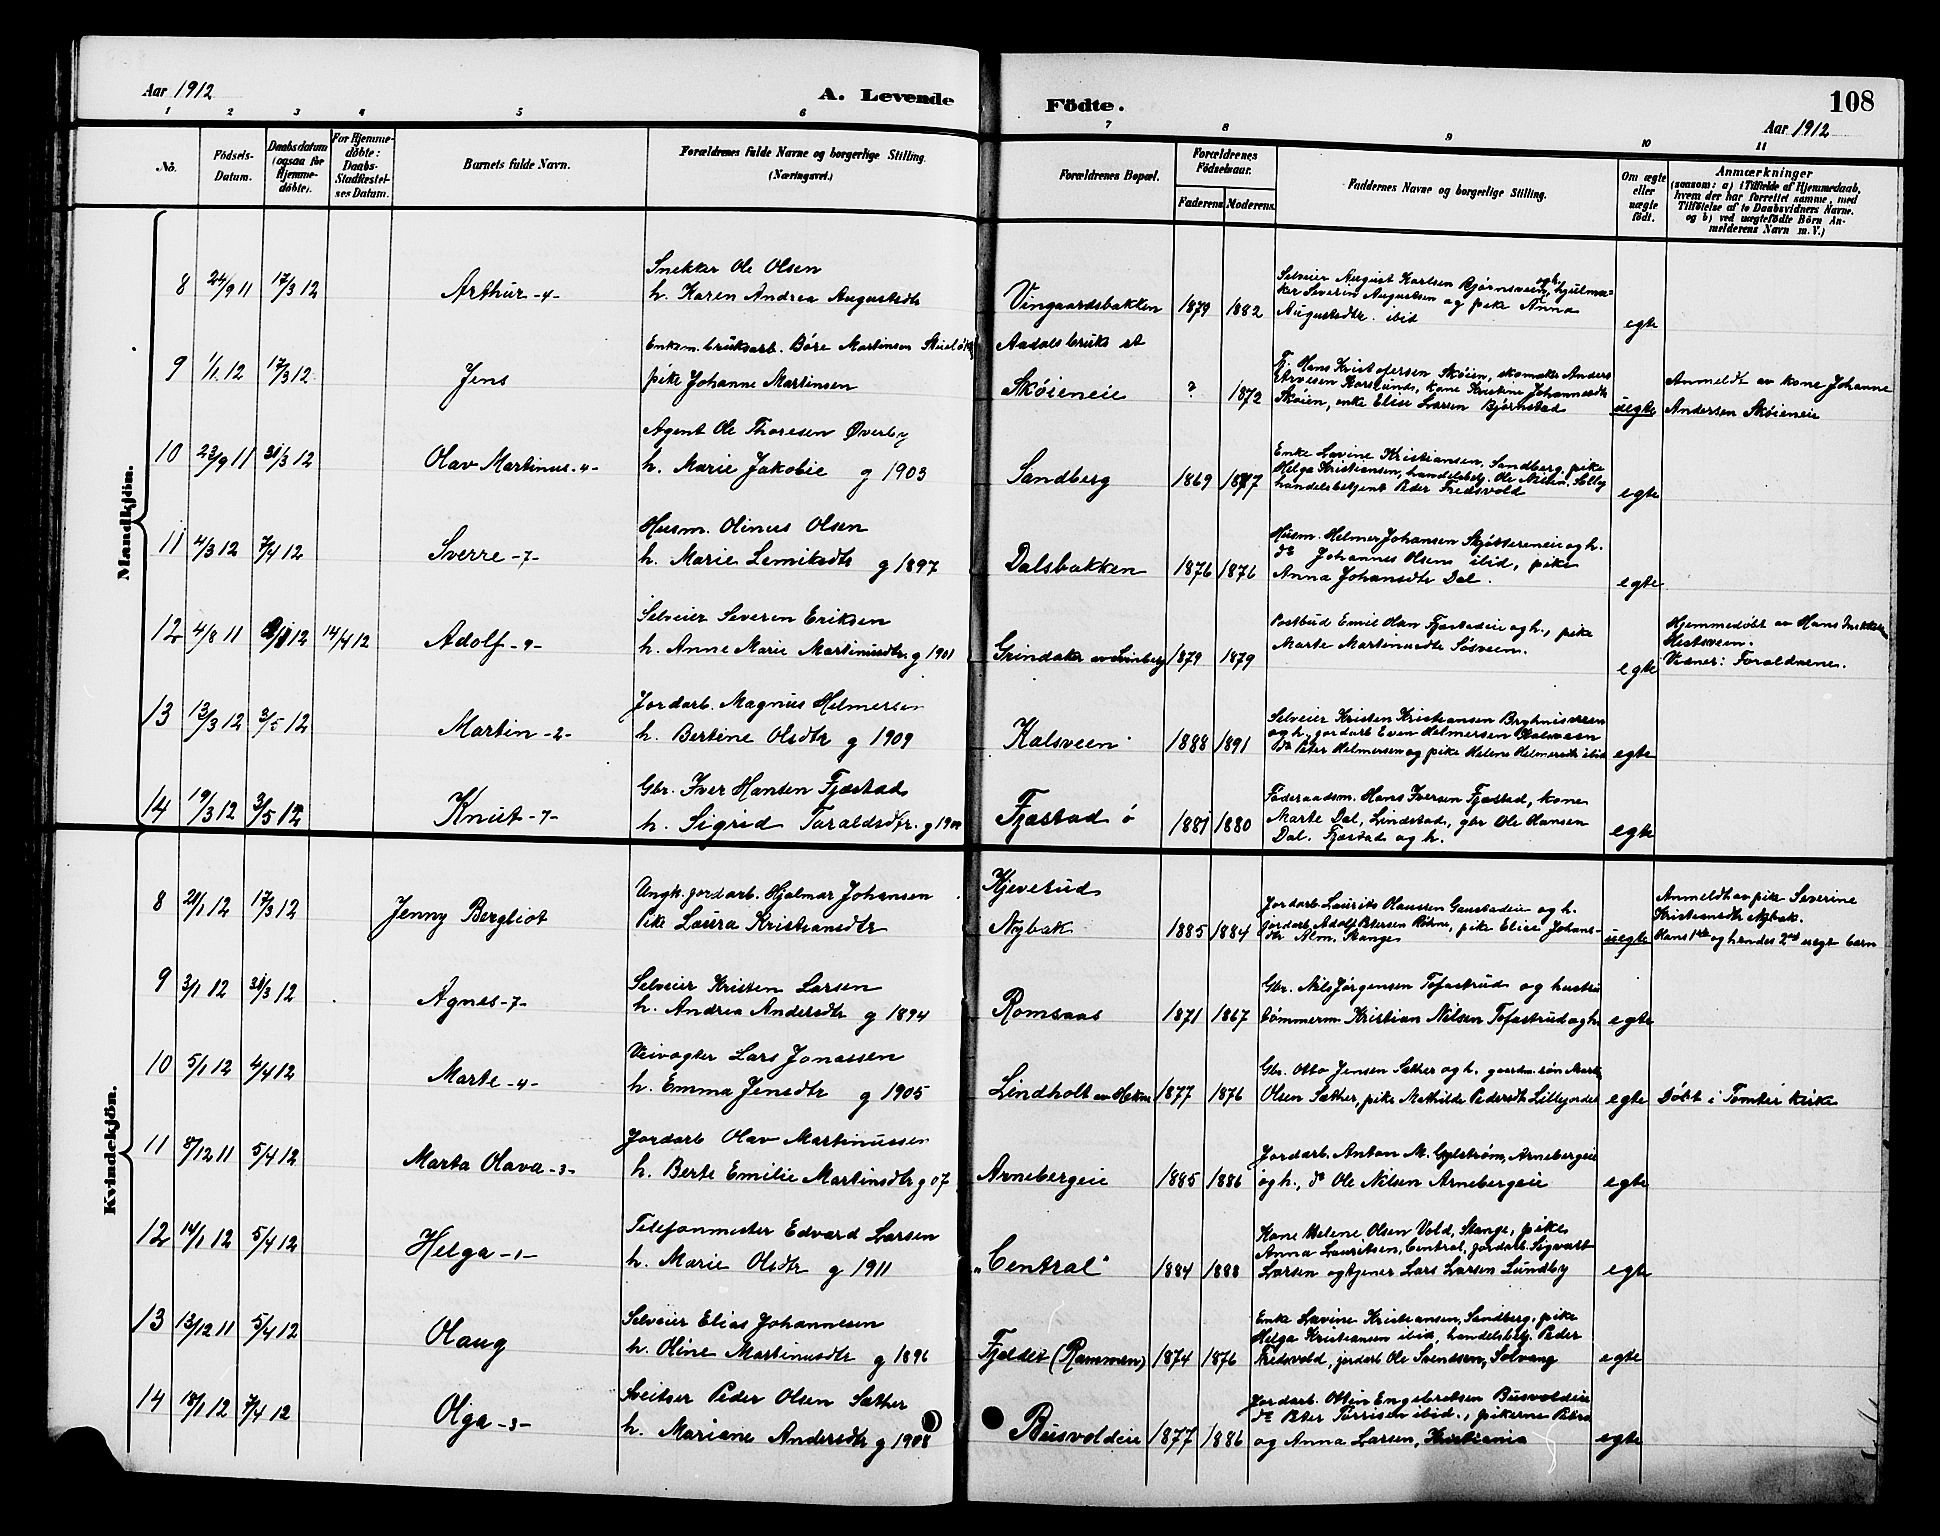 Aar 1912
A. Levende Födte.
108
Aar 1912
1 2 3 4 5 6 7 8 9 10 11
No.
Födsels-Datum.
Daabsdatum (ogsaa for Hjemmedöbte).
For Hjemmedöbte: Daabs-Stadfæstelses Datum.
Barnets fulde Navn.
Forældrenes fulde Navne og borgerlige Stilling. (Næringsvei.)
Forældrenes Bopæl.
Forældrenes Födselsaar.
Faderens. Moderens.
Faddernes Navne og borgerlige Stilling.
Om ægte eller uægte født.
Anmærkninger
(saasom: a) i Tilfælde af Hjemmedaab, hvem der har forrettet samme, med Tilføielse af to Daabsvidners Navne. og b) ved uægtefødte Börn Anmelderens Navn m. V.)
Mandkjön.
8 24/9 11 17/3 12 Arthur -4-
Snekker Ole Olsen
h. Karen Andrea Augustsdtr
Vingaardsbakken 1879 1882
Selveier August Karlsen Bjørnsveen og h., hjulma-
ker Severin Augustsen og pike Anna
Augustsdtr. ibid
egte
9 1/1 12 17/3 12 Jens
Enkem. bruksarb. Bóre Martinsen
pike Johanne Martinsen
Aadalsbruk st
Skøieneie ? 1872
Tj. Hans Kristofersen Skøien, skomaker Anders
kone Kristine Johannesdtr
Skøien, enke Elise Larsen Bjørnstad
uegte
Anmeldt av kone Johanne
Andersen Skøieneie
10 23/9 11 31/3 12 Olav Martinus -4-
Agent Ole Thoresen Øverby
h. Marie Jakobie g 1903
Sandberg 1869 1877
Enke Lovine Kristiansen, Sandberg, pike
Helga Kristiansen, handelsbetj. Ole Nilsen,
handelsbetjent Peder Fredsvold
egte
11 4/3 12 7/4 12 Sverre -7-
Husm. Olinus Olsen
h. Marie Lemiksdtr g 1897
Dalsbakken 1876 1876
Husm. Helmer Johansen Skjøttereneie og h.
do Johannes Olsen ibid, pike
Anna Johansdtr Dal.
egte
12 4/8 11 12 14/4 12 Adolf -9-
Selveier Severin Eriksen
h. Anne Marie Martinusdtr. g 1901
Grindaker av Lunberg 1879 1879
Postbud Emil Fjæstadeie og h., pike
Marte Martinusdtr Søsveen.
egte
Hjemmedøbt av Hans
Hestsveen.
Vidner: Forældrene.
13 13/3 12 3/5 12 Martin -2-
Jordarb. Magnus Helmersen
h. Bertine Olsdtr g 1909
Kalsveen 1888 1891
Selveier Kristen Kristiansen Bryhnisveen
og h., jordarb Even Helmersen Kalsveen
do Peter Helmersen og pike Helene Helmersdtr ibid
egte
14 19/3 12 3/5 12 Knut -7-
Gbr. Iver Hansen Fjæstad
h. Sigrid Taraldsdtr. g 1900
Fjæstad ö 1881 1880
Føderaadsm. Hans Iversen Fjæstad, kone
Marte Dal, Lindstad, gbr Ole Hansen
Dal. Fjæstad og h.
egte
Kvindekjön.
8 28/1 12 17/3 12 Jenny Bergliot
Ungk. jordarb. Hjalmar Johansen
Pike Laura Kristiansdtr
Kjevelsud
Nybak 1885 1884
Jordarb. Laurits Olaussen Gaustadeie og h.
jordarb. Adolf Petersen Røhne, pike Elise Johans-
dtr Alm. Stange
uegte
Anmeldt av pike Severine
Kristiansdtr Nybak.
Hans 1ste og hendes 2net uegt barn
9 3/1 12 31/3 12 Agnes -7-
Selveier Kristen Larsen
h. Andrea Andersdtr g 1894
Romsaas 1871 1867
Gbr. Nils Jørgensen Tofastrud og hustru
tømmerm. Kristian Nilsen Tofastrud og h.
egte
10 5/1 12 4/4 12 Marte -4-
Veivogter Lars Jonassen
h. Emma Jensdtr g 1905
Lindholt av Helm 1877 1876
Gbr. Otto Jensen Sæther og h. gaardm. søn Martin
Olsen Sæther, pike Mathilde Pedersdtr Lillejordet
egte
Døbt i Tomter kirke
11 8/12 11 5/4 12 Marta Olava -3-
Jordarb Olav Martinussen
h. Berte Emilie Martinsdtr g 07
Arnebergeie 1885 1886
Jordarb. Anton M. Gylstrøm, Arnebergeie
og h., do Ole Nilsen Arnebergeie
egte
12 14/1 12 5/4 12 Helga -1-
Telefonmester Edvard Larsen
h. Marie Olsdtr g 1911
„Central" 1884 1888
Kone Helene Olsen Vold, Stange, pike
Anna Lauritsen, Central, jordarb. Sigvart
Larsen og tjener Lars Larsen Lundby
egte
13 13/12 11 5/4 12 Olaug
Selveier Elias Johannesen
h. Oline Martinusdtr g 1896
Fjeldset (Rammen) 1874 1876
Enke Lovine Kristiansen, Sandberg, pike
Helga Kristiansen ibid, handelsbetj. Peder
Fredsvold, jordarb Ole Svendsen, Solvang
egte
14 18/1 12 7/4 12 Olga -3-
Sveitser Peder Olsen Sæther
h. Mariane Andersdtr g 1908
Busvoldeie 1877 1886
Jordarb. Ottin Engebretsen Busvoldeie
do Peter Torrisen ibid., pikerne Petra
og Anna Larsen, Kristiania
egte